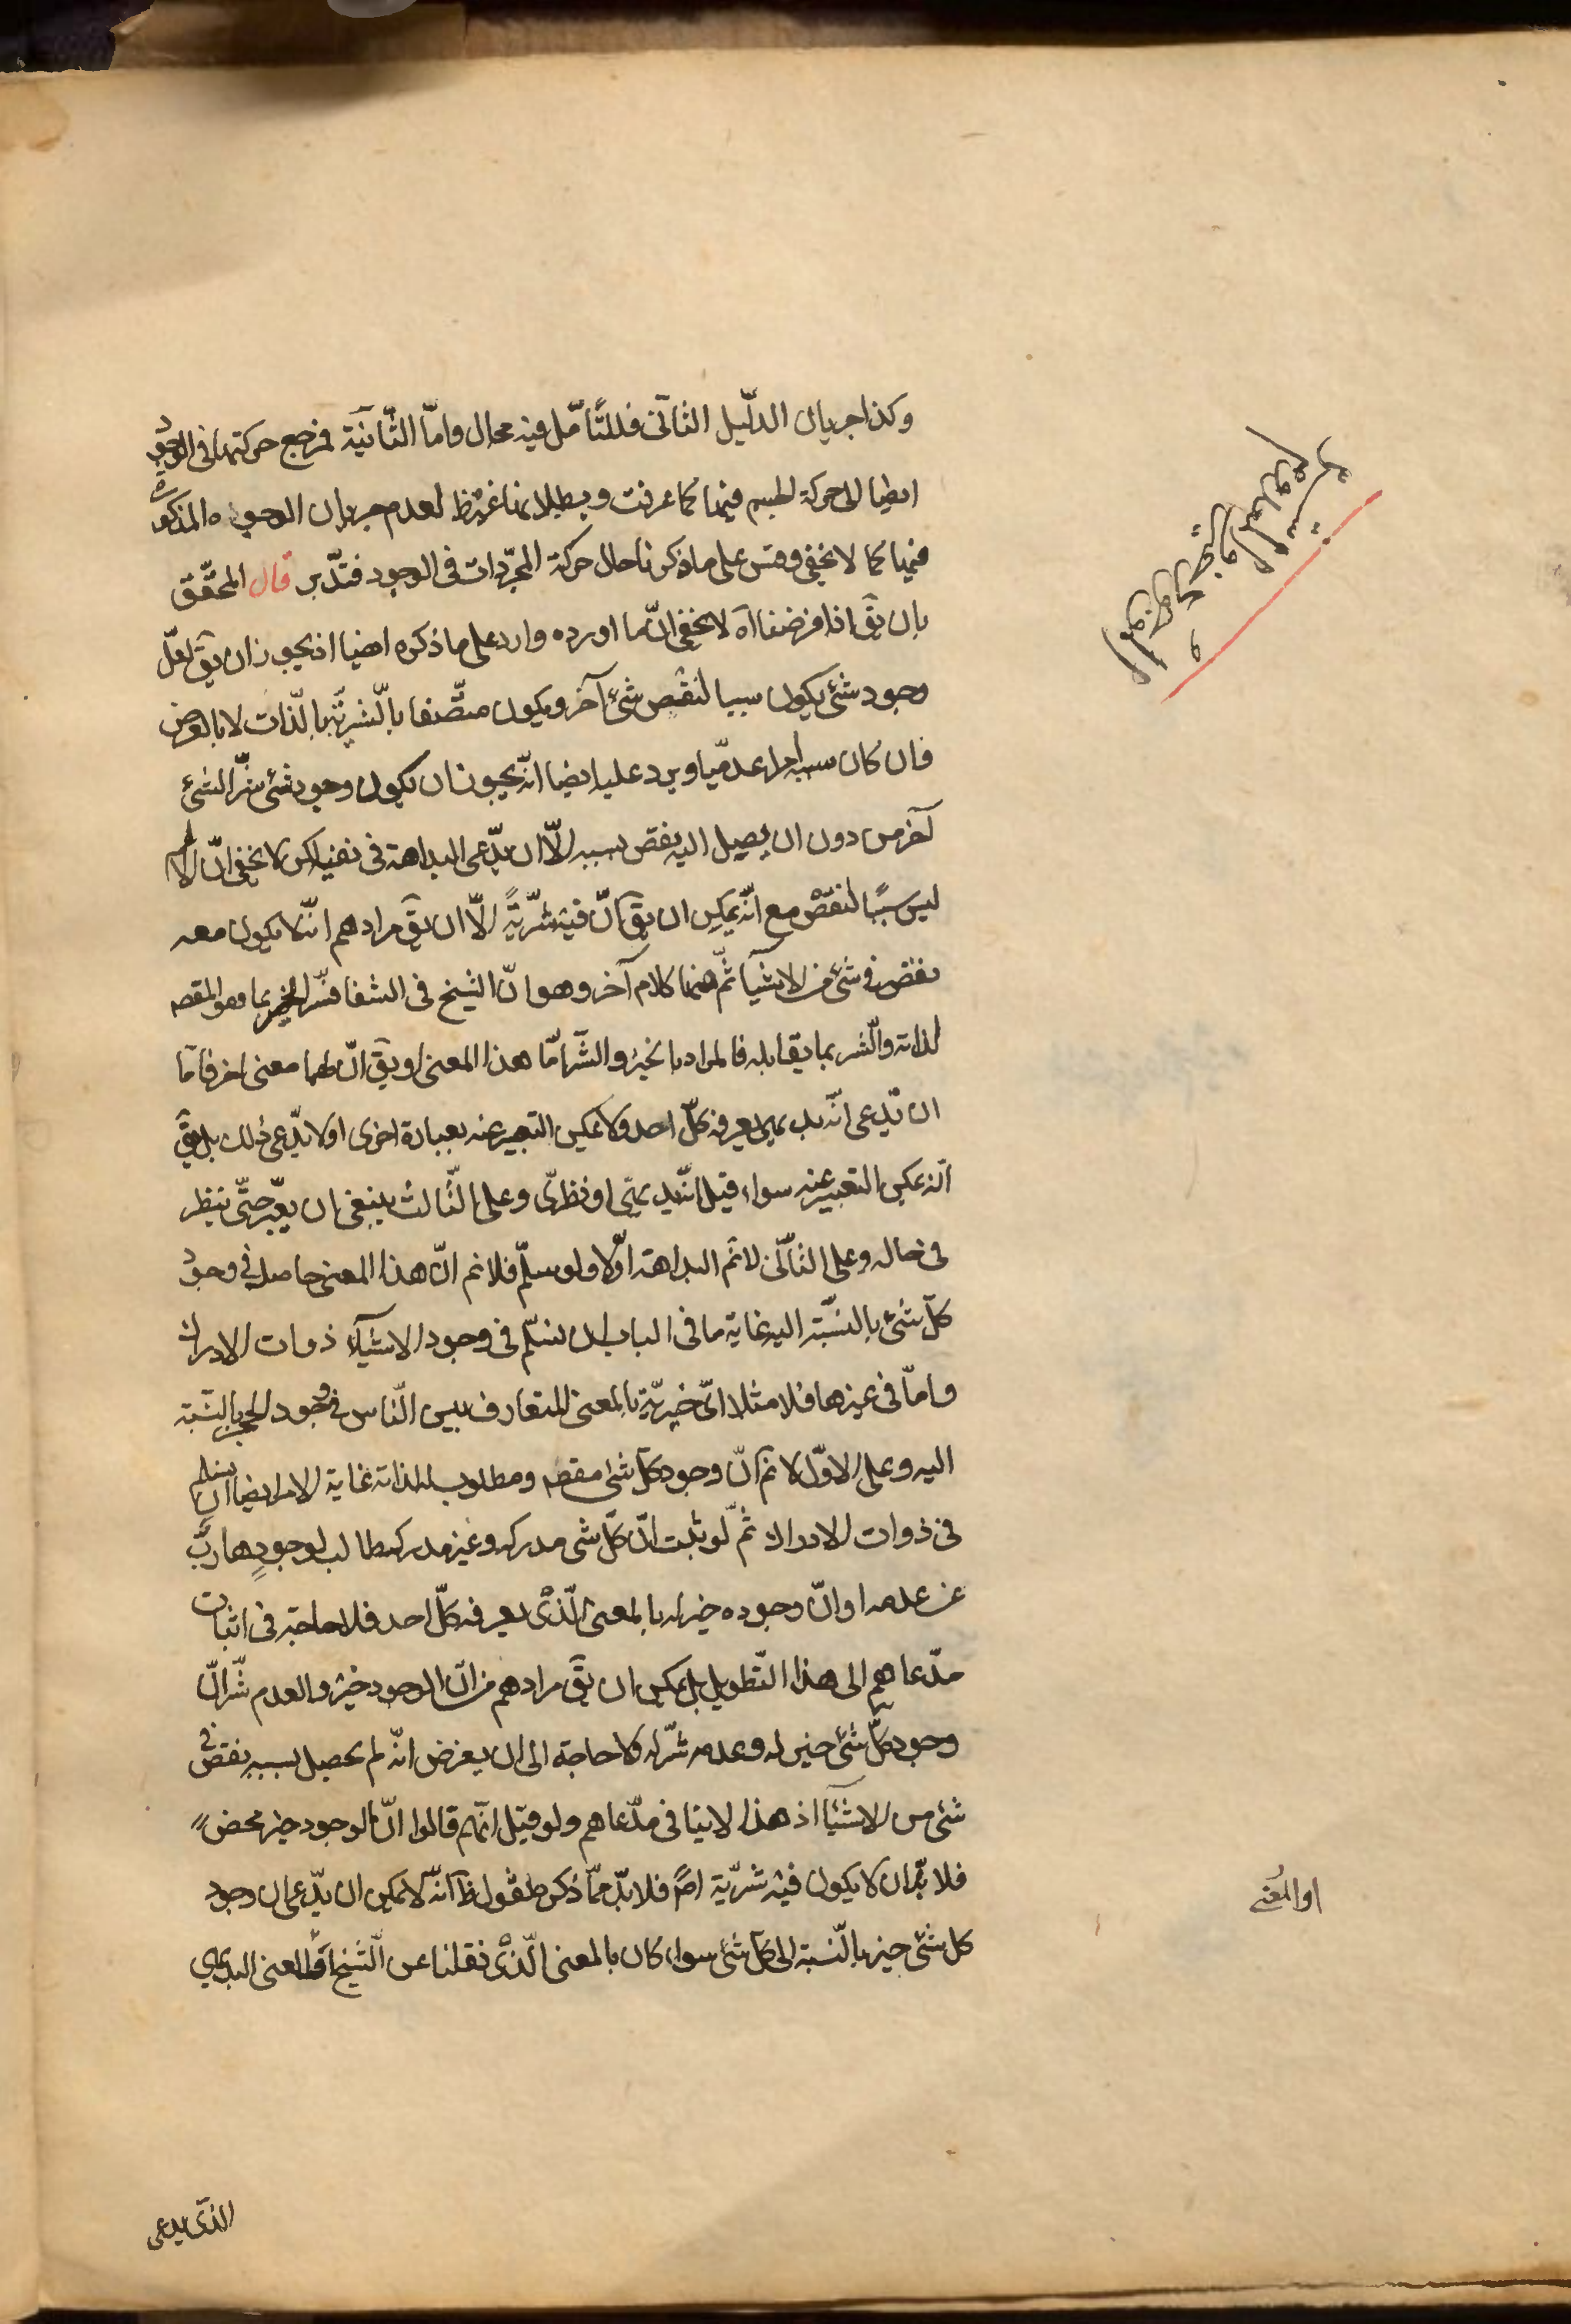 وكذا جريان الدّليل الثّانى فللتّأمّل فيه مجال وامّا الثّانية فمرجع حركتهما فى الوجود
ايضا الى حركة الجسم فيهما كما عرفت وبطلانها غير ظ لعدم جريان الوجوه المذكورة
فيها كما لا يخفى وقس على ما ذكرنا حال حركة المجرّدات فى الوجود فتدّبر قال المحقّق
بان يق اذا فرضنا آه لا يخفى انّ ما اورده وارد على ما ذكره ايضا اذ يجوز ان يق لعلّ
وجود شئ يكون سببا لنقص شئ آخر ويكون متّصفا بالّشريّة بالذّات لا بالعرض
فان كان سببه امرا عدميّا ويرد عليه ايضا انّه يجوز ان يكون وجود شئ شرّا لشئ
آخر من دون ان يصل اليه نقص بسببه الّا ان يدّعى البداهة فى نفيه لكن لا يخفى انّ الالم
ليس سببًا لنقص مع انّه يمكن ان يق انّ فيه شرّيّةً الّا ان يق مرادهم انّه لا يكون معه
نقص فى شئ من الاشيآ ثمّ هنا كلام آخر وهو انّ الشيخ فى الشفا فسّر الخير بما هو المقصه
لذاته والّشر بما يقابله فالمراد بالخير والشّر امّا هذا المعنى او يق انّ لهما معنى اخر فامّا
ان يدّعى انّه بديهىّ يعرفه كلّ احد ولا يمكن التعبير عنه بعبارة اخرى او لا يدّعى ذلك بل يق
انّه يمكن التعبير عنه سواء قيل انّه بديهىّ او نظرىّ وعلى الثّالث ينبغى ان يعبّر حتّى ينظر
فى حاله وعلى الثّانى لا نم البداهة اوّلا ولو سلّم فلا نم انّ هذا المعنى حاصل فى وجود
كلّ شئ بالنسّبة اليه غاية ما فى الباب ان نسلّم فى وجود الاشيآء ذوات الادراك
وامّا فى غيرها فلا مثلا اىّ خيريّة بالمعنى المتعارف بين النّاس فى وجود الحجر بالنسّبة
اليه وعلى الاوّل لا نم انّ وجود كلّ شئ مقصه ومطلوب له لذاته غاية الامر ايضا ان نسلم
فى ذوات الادراك ثمّ لو ثبت انّ كلّ شئ مدركه وغير مدركه طالب لوجوده هاربٌ
عن عدمه او انّ وجوده خير له بالمعنى الّذى يعرفه كلّ احد فلا حاجة فى اثبات
مدّعاهم الى هذا التّطويل بل يمكن ان يق مرادهم من انّ الوجود خير والعدم شّر انّ
وجود كلّ شئ خير له وعدمه شرّ له ولا حاجة الى ان يفرض انّه لم يحصل بسببه نقص فى
شئ من الاشيآ اذ هذا لا ينافى مدّعاهم ولو قيل انّهم قالوا انّ الوجود خير محض
فلا بدّ ان لا يكون فيه شرّيّة اصً فلا بدّ ممّا ذكر فنقول ظ انّه لا يمكن ان يدّعى ان وجود
كل شئ خير بالّنسبة الى كلّ شئ سواء كان بالمعنى الّذى نقلنا عن الّشيخ او المعنى البديهى
او المعنى
الذّى يدعى